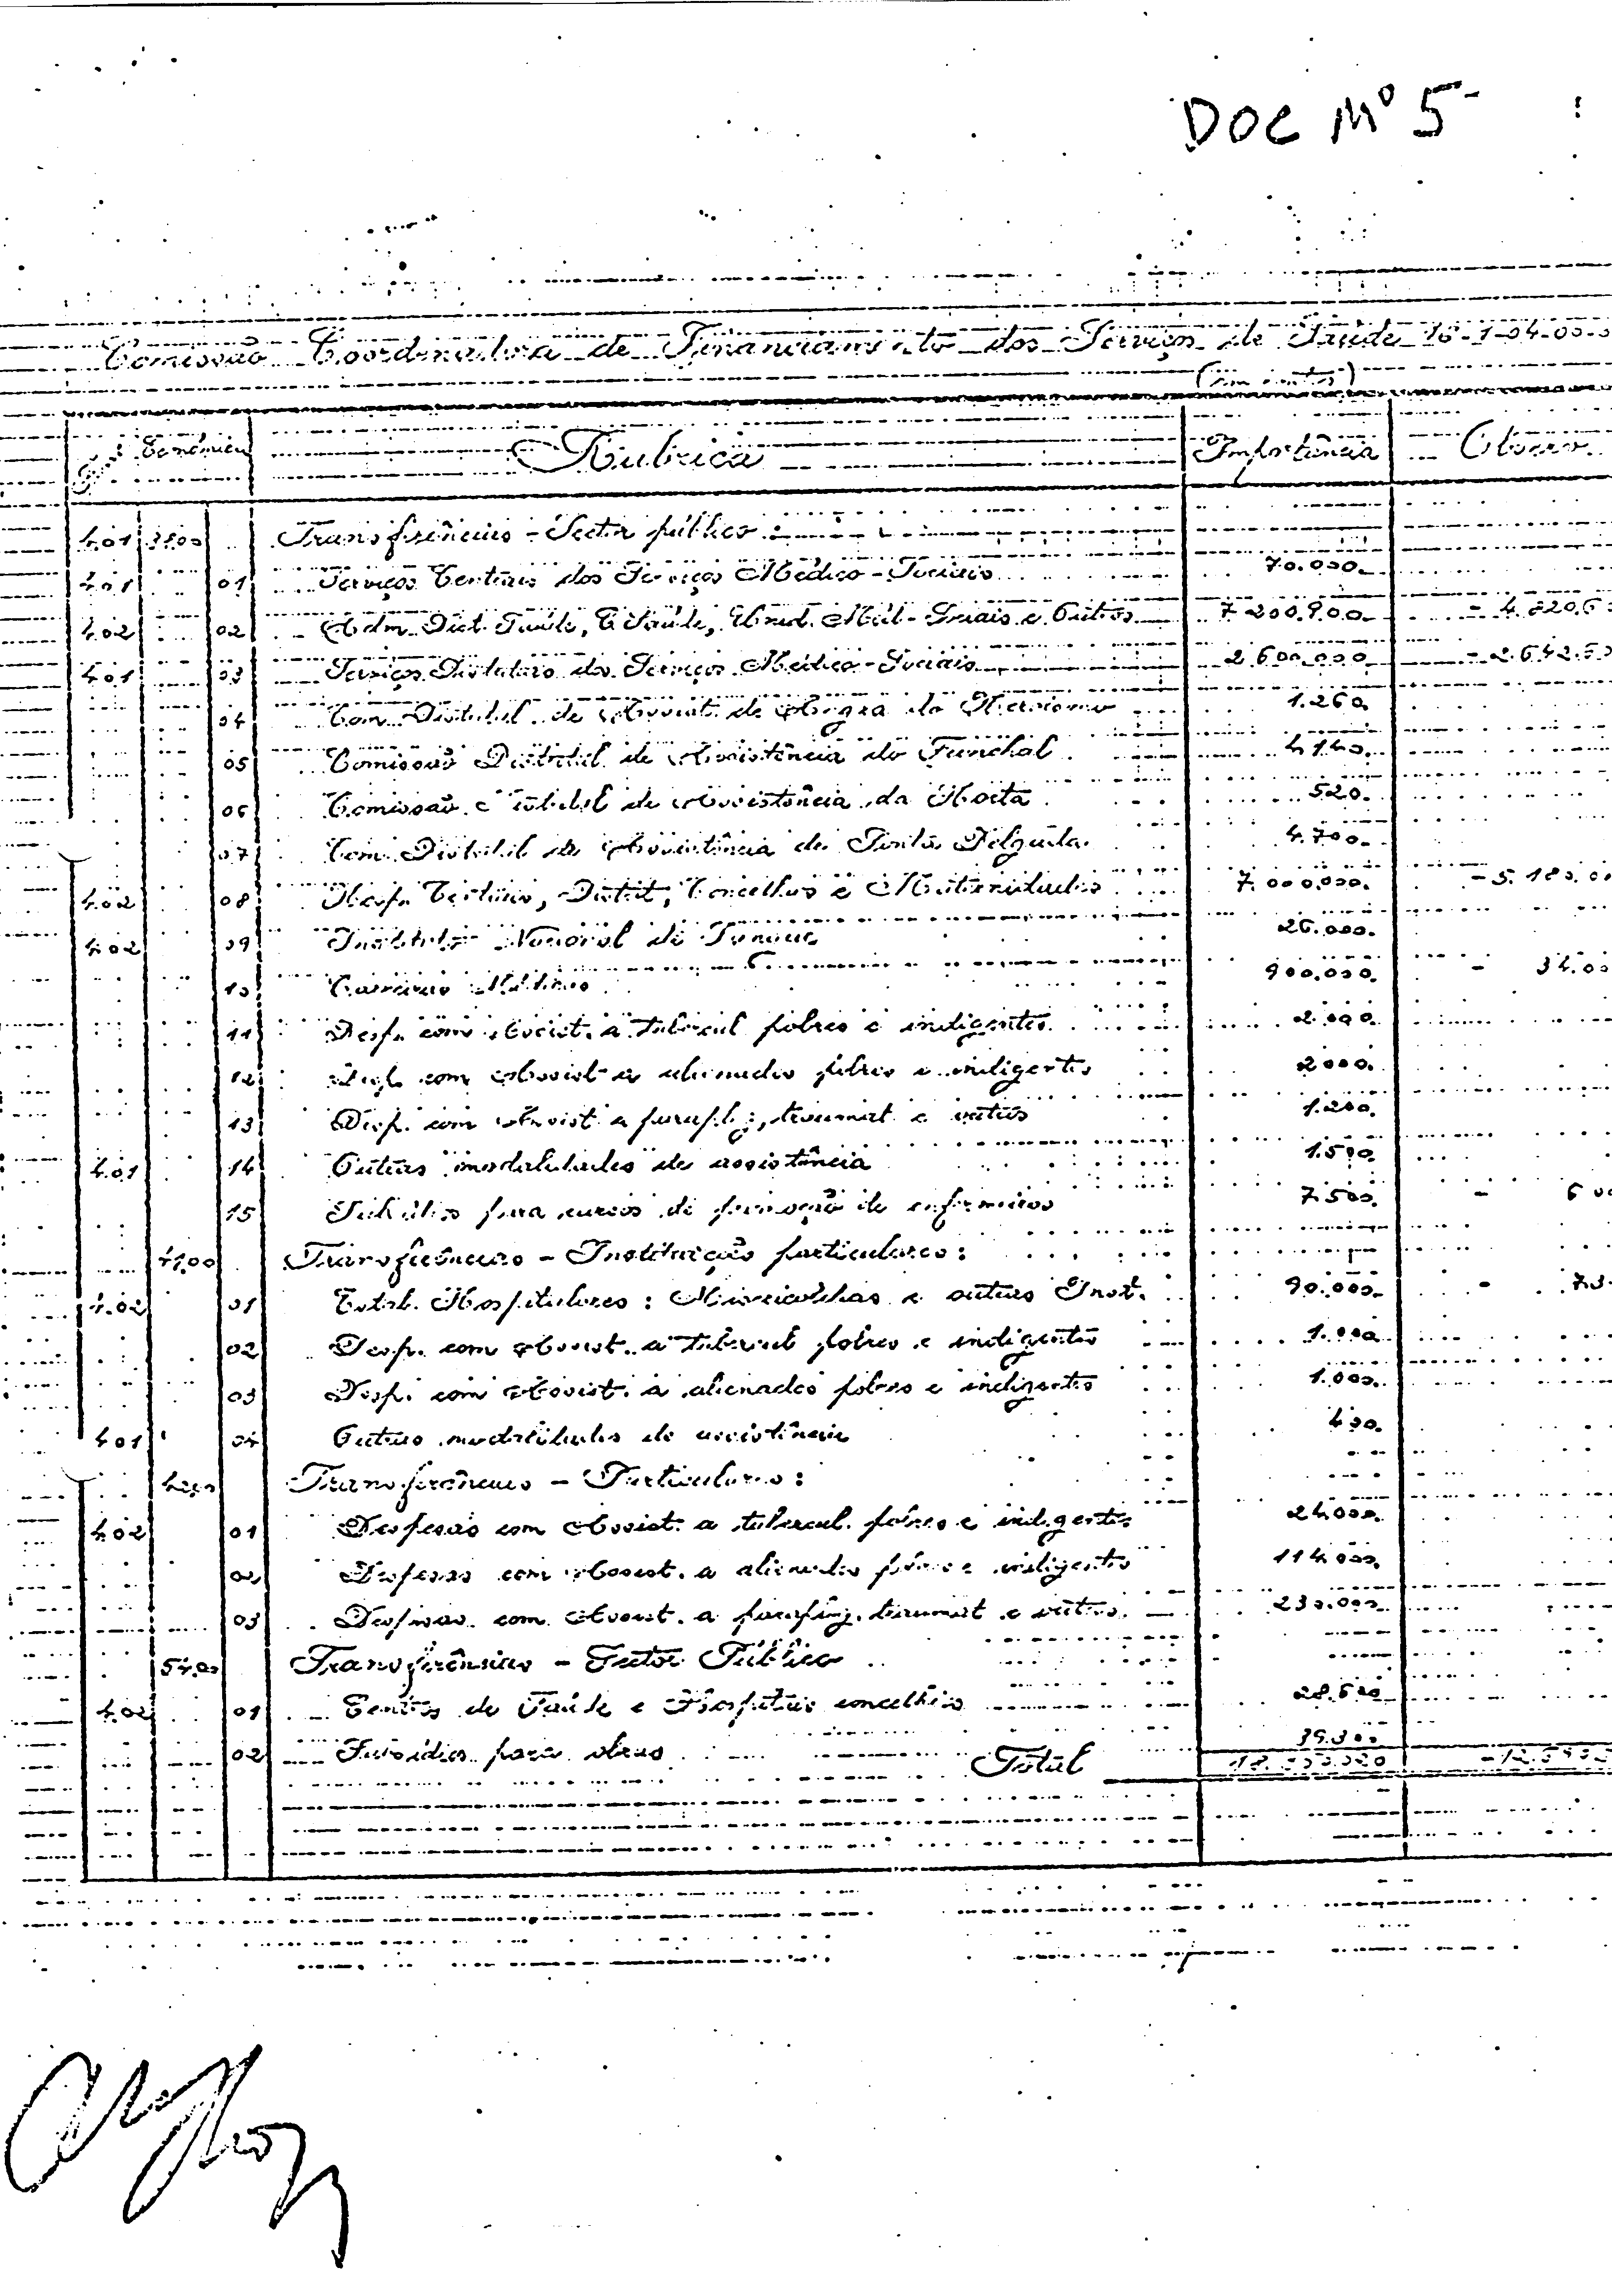 DOC Nº 5
Comissão Coordenadora de Financiamento dos Serviços de Saúde 16-1-04.00-0
(em contos)
Económica Rubrica Importância Observ.
4.01 38.00 Transferências - Sector público:
4.01 01 Serviços Centrais dos Serviços Médico-Sociais 70.000
4.02 02 Adm. Dist. Saúde, C. Saúde, Unid. Méd-Sociais e Outros 7.200.900 - 4.820.6
4.01 03 Serviços Distritais dos Serviços Médico-Sociais 2.600.000 - 2.642.50
04 Com. Distrital de Assist. de Angra do Heroísmo 1.260
05 Comissão Distrital de Assistência do Funchal 4.140
06 Comissão Distrital de Assistência da Horta 520
07 Com. Distrital de Assistência de Ponta Delgada 4.700
4.02 08 Hosp. Centrais, Distrit, Concelhos e Maternidades 7.000.000 - 5.180.00
4.02 09 Instituto Nacional de Sangue 26.000
10 Carreiras Médicas 900.000 - 34.00
11 Desp. com Assist. a tubercul pobres e indigentes 2.000
12 Desp. com Assist a alienados pobres e indigentes 2.000
13 Desp. com Assist a paraplég, traumat e outros 1.200
4.01 14 Outras modalidades de assistência 1.500
15 Subsídios para cursos de promoção de enfermeiros 7.500 - 6 00
41.00 Transferências - Instituições particulares:
4.02 01 Estab. Hospitalares: Misericórdias e outras Inst. 90.000 - 73.
02 Desp. com Assist. a tubercul pobres e indigentes 1.000
03 Desp. com Assist. a alienados pobres e indigentes 1.000
4.01 04 Outras modalidades de assistência 400
42.00 Transferências - Particulares:
4.02 01 Despesas com Assist. a tubercul. pobres e indigentes 24.000
02 Despesas com Assist. a alienados pobres e indigentes 114.000
03 Despesas com Assist. a paraplég. traumat e outros 230.000
54.00 Transferências - Sector Público
4.02 01 Centros de Saúde e Hospitais concelhios 28.600
02 Subsídios para obras 39.300
Total